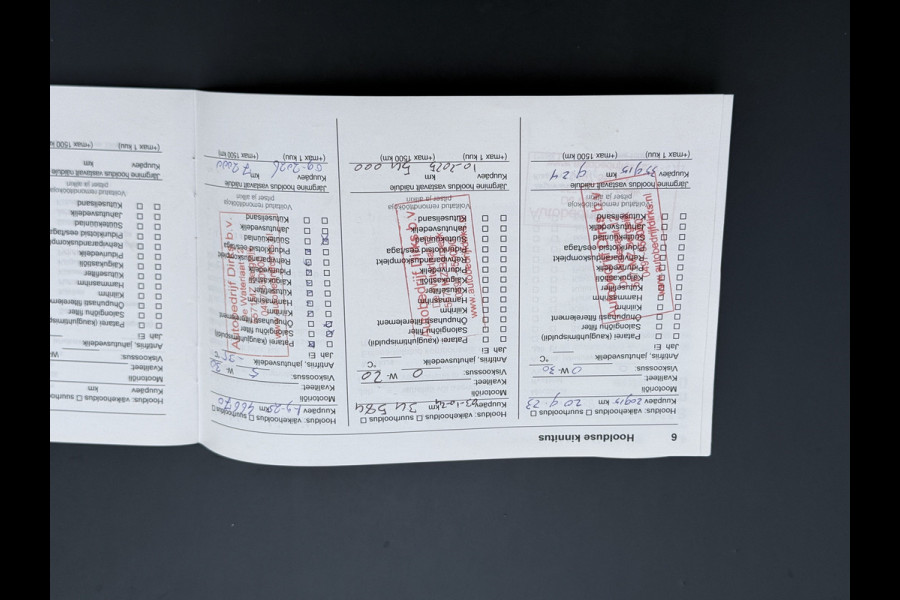 6 Hoolduse kinnitus
Hooldus: väikehooldus ☐ suurhooldus ☐
Kuupäev 20915 km 20 9 23
Mootoriõli
Kvaliteet:
Viskoossus: 0 W- 30
Antifriis, jahutusvedelik °C
Jah Ei
Patarei (kaugjuhtimispuldi)
Salongiõhu filter
Õhupuhasti filterelement
Kiilrihm
Hammasrihm
Kütusefilter
Käigukastiõli
Pidurivedelik
Rehviparanduskomplekt
Pidurklotsid ees/taga
Süüteküünlad
Jahutusvedelik
Kütuselisand
Volitatud remonditöökoja
pitser ja allkiri
Järgmine hooldus vastavalt näidule
Kuupäev km
(+max 1 kuu) (+max 1500 km)
Hooldus: väikehooldus ☐ suurhooldus ☐
Kuupäev km 34584
Mootoriõli
Kvaliteet:
Viskoossus: 0 W- 20
Antifriis, jahutusvedelik °C
Jah Ei
Patarei (kaugjuhtimispuldi)
Salongiõhu filter
Õhupuhasti filterelement
Kiilrihm
Hammasrihm
Kütusefilter
Käigukastiõli
Pidurivedelik
Rehviparanduskomplekt
Pidurklotsid ees/taga
Süüteküünlad
Jahutusvedelik
Kütuselisand
Autobedrijf Dirks b.v.
Volitatud remonditöökoja
pitser ja allkiri
Järgmine hooldus vastavalt näidule
Kuupäev 10-2025 km 54 000
(+max 1 kuu) (+max 1500 km)
Hooldus: väikehooldus ☐ suurhooldus
Kuupäev km 46670
Mootoriõli
Kvaliteet:
Viskoossus: 5 W- 30
Antifriis, jahutusvedelik -35
Jah Ei
Patarei (kaugjuhtimispuldi)
Salongiõhu filter
Õhupuhasti filterelement
Kiilrihm
Hammasrihm
Kütusefilter
Käigukastiõli
Pidurivedelik
Rehviparanduskomplekt
Pidurklotsid ees/taga
Süüteküünlad
Jahutusvedelik
Kütuselisand
Autobedrijf Dirks b.v.
Volitatud remonditöökoja
pitser ja allkiri
Järgmine hooldus vastavalt näidule
Kuupäev 09-2026 km 72000
(+max 1 kuu) (+max 1500 km)
Kuupäev km
Mootoriõli
Kvaliteet:
Viskoossus: W-
Antifriis, jahutusvedelik
Jah Ei
Patarei (kaugjuhtimispuldi)
Salongiõhu filter
Õhupuhasti filterelement
Kiilrihm
Hammasrihm
Kütusefilter
Käigukastiõli
Pidurivedelik
Pidurklotsid ees/taga
Süüteküünlad
Jahutusvedelik
Kütuselisand
Volitatud remonditöökoja
pitser ja allkiri
Järgmine hooldus vastavalt näidule
Kuupäev km
(+max 1 kuu) (+max 1500 km)